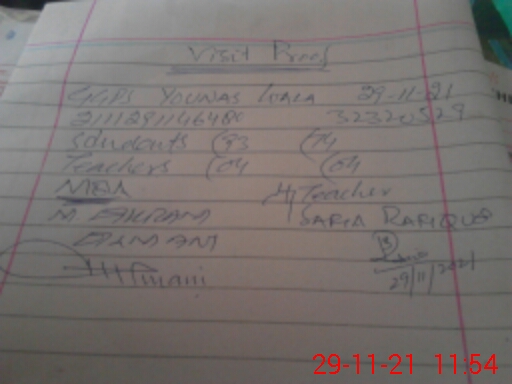 Visit Proof
GGPS YOUNAS WALA 29-11-21
32320529
Students (93 (74
Teachers (04 (04
MEA H/Teacher
M. AKRAM SAFIA RAFIQUE
29/11/2021
29-11-21 11:54